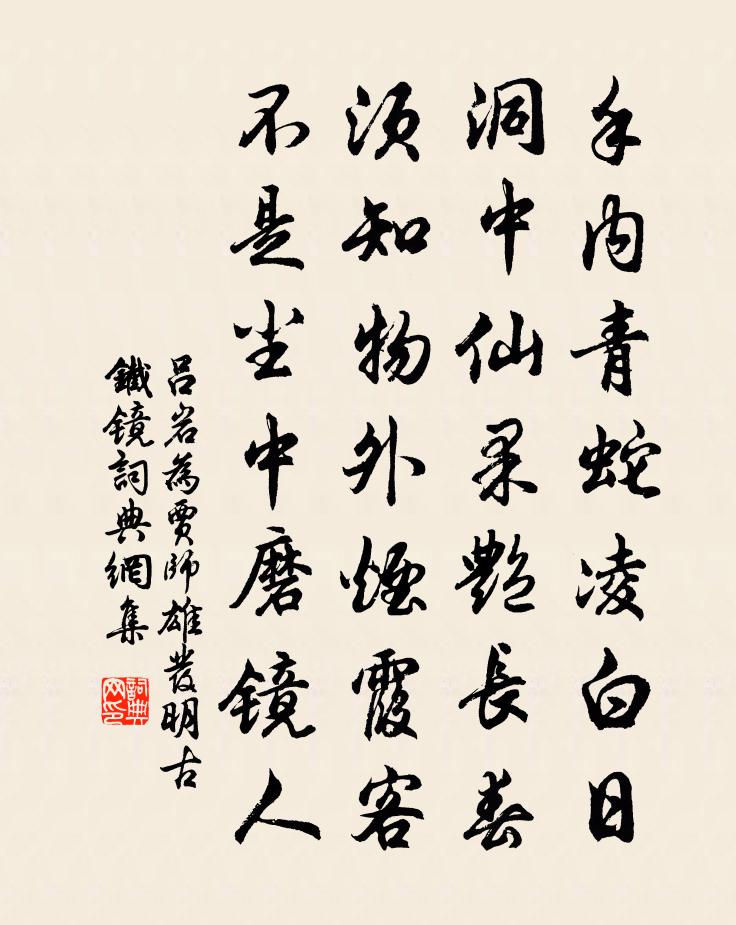 手内青蛇凌白日
洞中仙果艷長春
須知物外煙霞客
不是尘中磨鏡人
吕岩為賈師雄發明古
鐵鏡詞典網集
詞典
网印